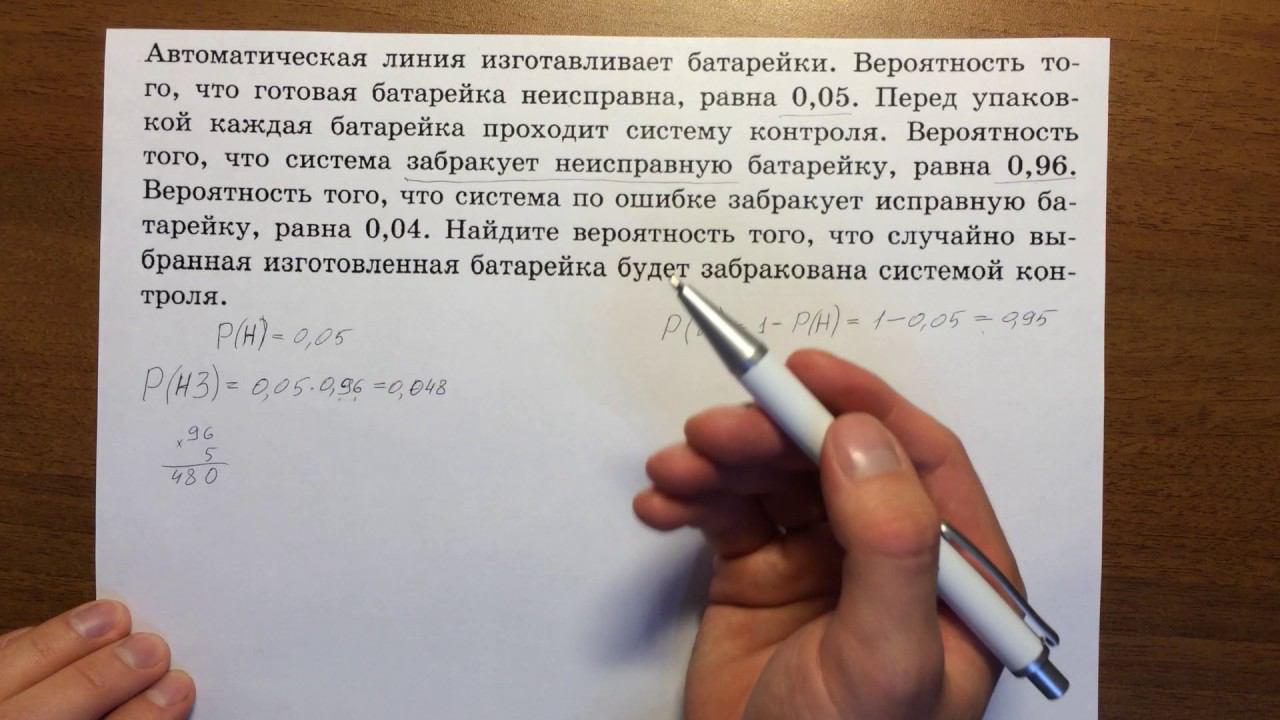 Автоматическая линия изготавливает батарейки. Вероятность то-
го, что готовая батарейка неисправна, равна 0,05. Перед упаков-
кой каждая батарейка проходит систему контроля. Вероятность
того, что система забракует неисправную батарейку, равна 0,96.
Вероятность того, что система по ошибке забракует исправную ба-
тарейку, равна 0,04. Найдите вероятность того, что случайно вы-
бранная изготовленная батарейка будет забракована системой кон-
троля.
P(H) = 0,05
1 - P(H) = 1-0,05 = 0,95
P(НЗ) = 0,05·0,96 =0,048
×96
5
480